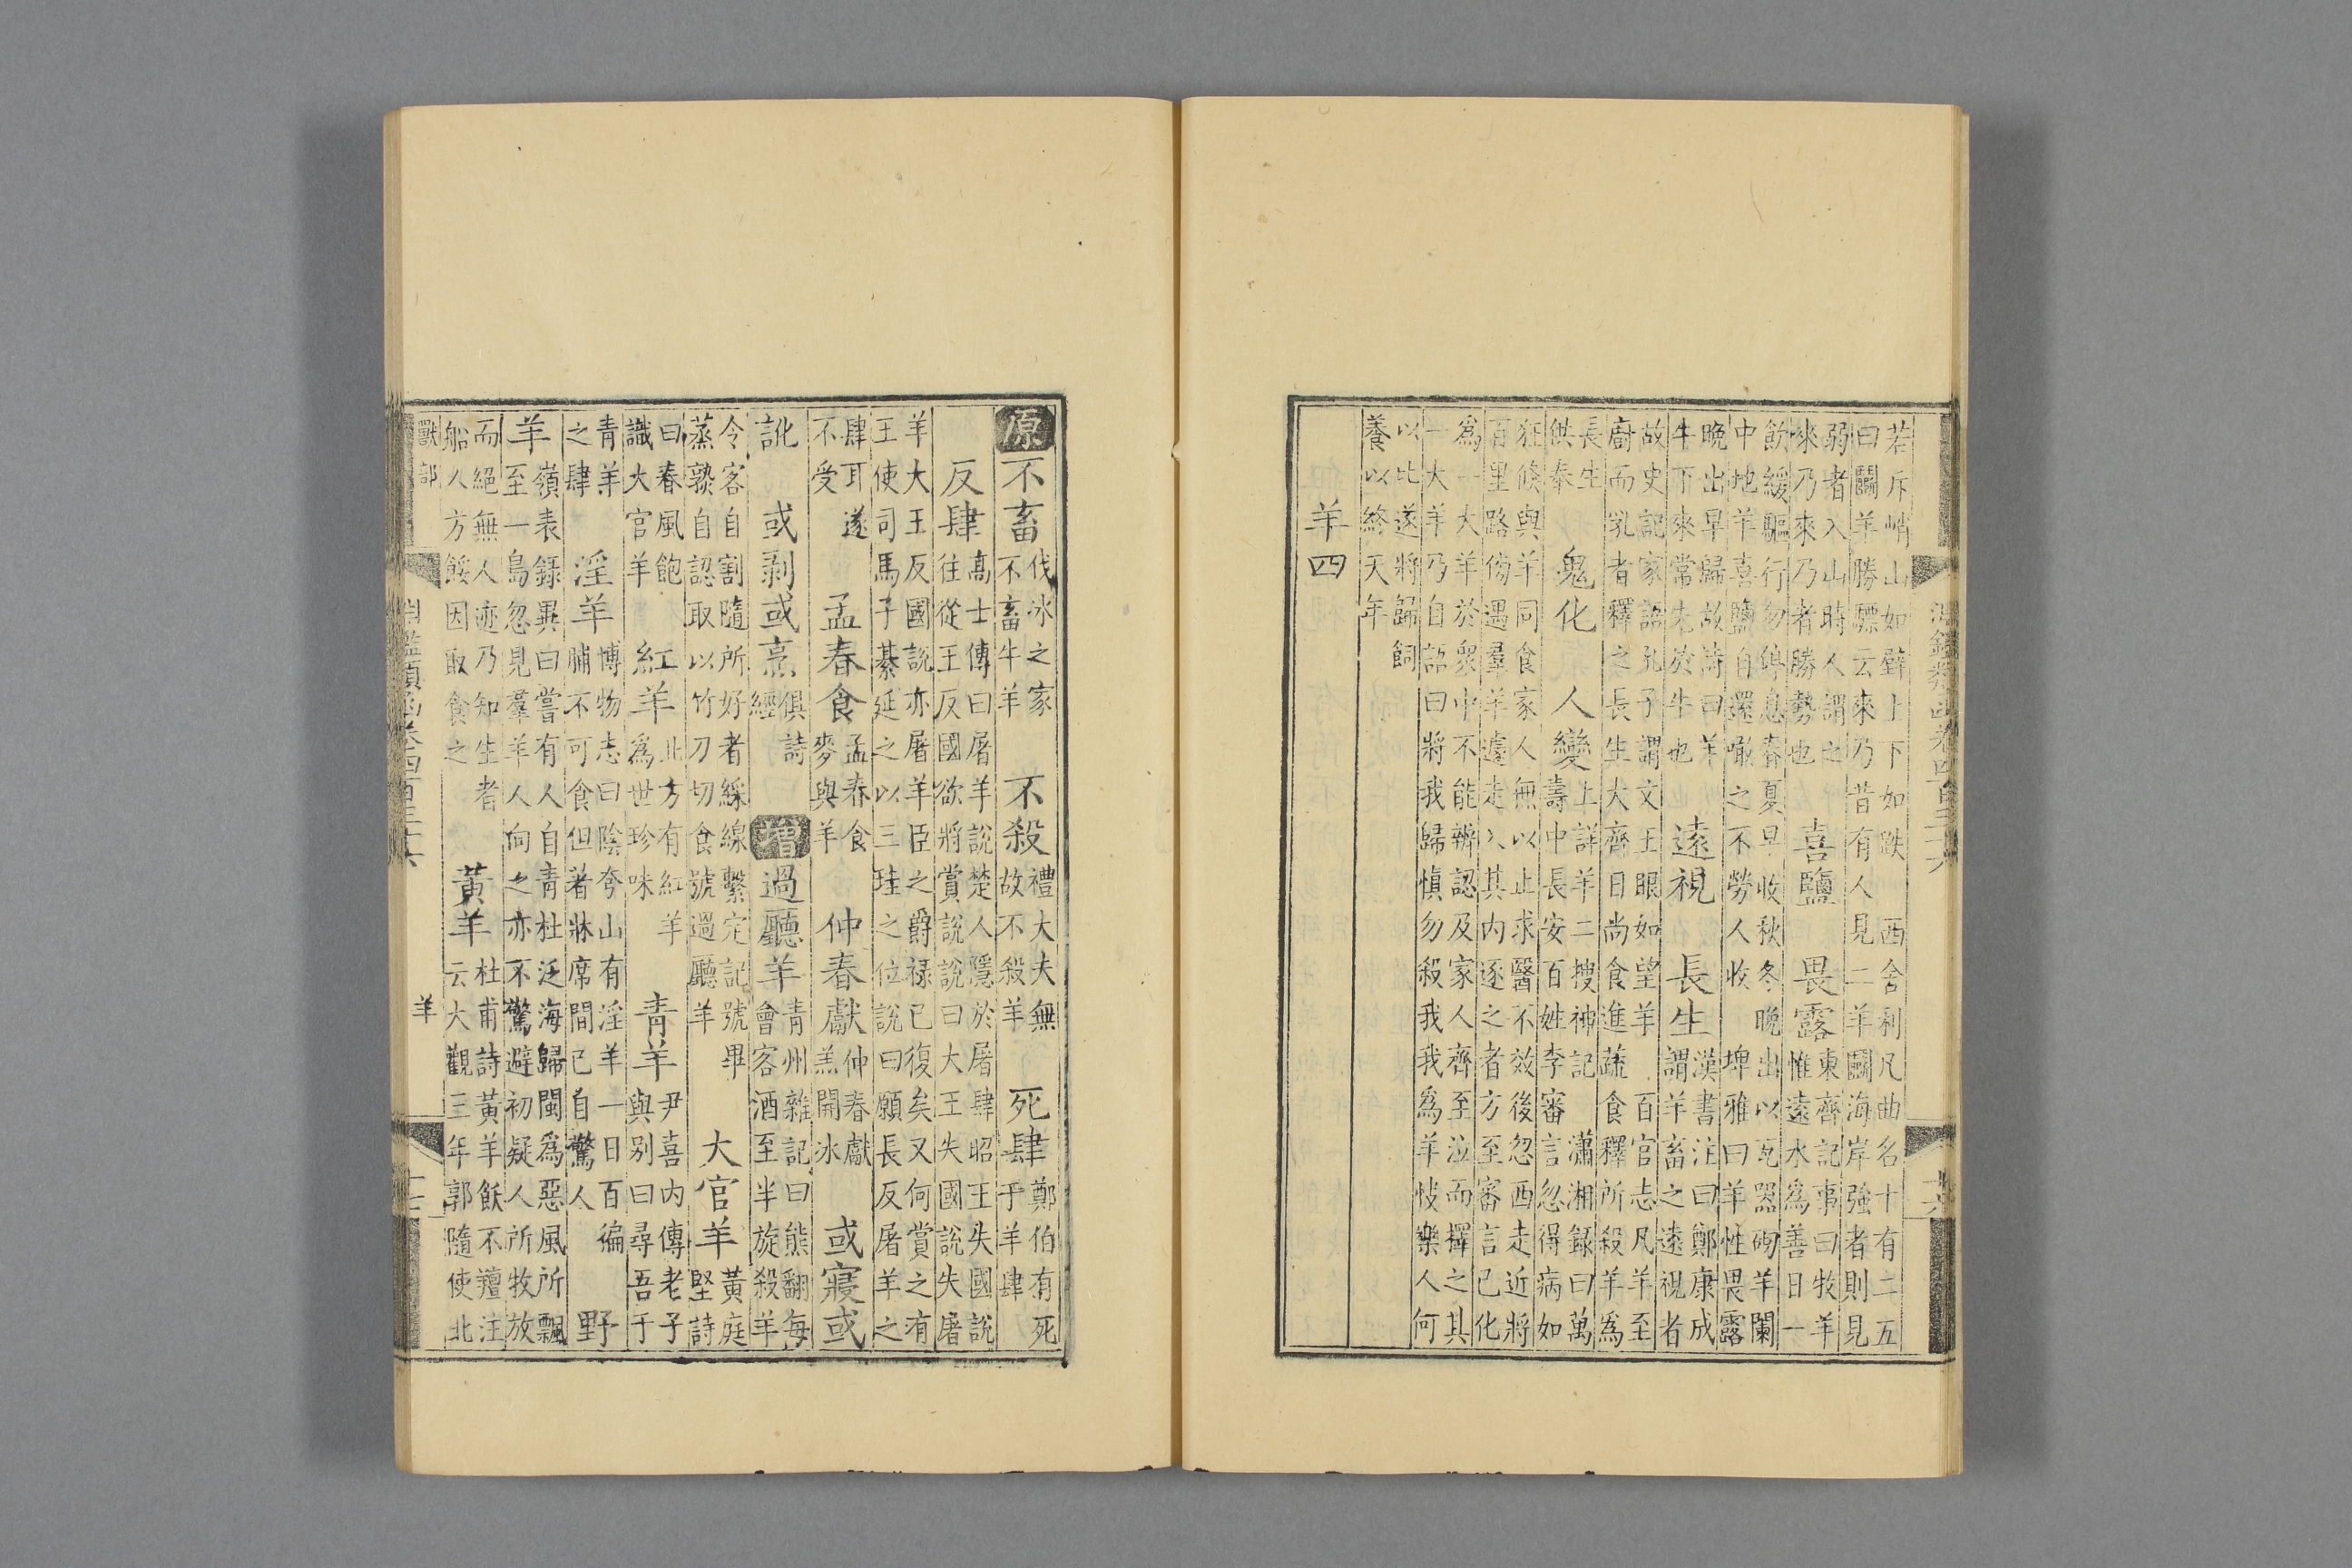 淵鑑類函卷四百三十六
十六
若斥峭山如壁上下如跌 西舍利凡曲名十有二五
曰鬬羊勝驃云來乃昔有人見二羊鬬海岸強者則見
弱者入山時人謂之
來乃來乃者勝勢也
喜鹽 畏露
東齊記事曰牧羊
惟遠水爲善日一
飲緩驅行勿停息春夏早收秋冬晚出以瓦器砌羊闌
中地羊喜鹽自還啖之不勞人收 埤雅曰羊性畏露
晚出早歸故詩曰羊
牛下來常先於牛也
遠視 長生
漢書注曰鄭康成
謂羊畜之遠視者
故史記家語孔子謂文王眼如望羊 百官志凡羊至
廚而乳者釋之長生大齊日尚食進蔬食釋所殺羊爲
長生
供奉
鬼化 人變
上詳羊二搜神記 瀟湘錄曰萬
壽中長安百姓李審言忽得病如
狂倏與羊同食家人無以止求醫不效後忽西走近將
百里路傍遇羣羊遽走入其内逐之者方至審言已化
爲一大羊於衆中不能辨認及家人齊至泣而擇之其
一大羊乃自語曰將我歸愼勿殺我我爲羊快樂人何
以比遂將歸飼
養以終天年
羊四
原 不畜
伐冰之家
不畜牛羊
不殺
禮大夫無
故不殺羊
死肆
鄭伯有死
于羊肆
反肆
高士傳曰屠羊說楚人隱於屠肆昭王失國說
往從王反國欲將賞說說曰大王失國說失屠
羊大王反國說亦屠羊臣之爵祿已復矣又何賞之有
王使司馬子綦延之以三珪之位說曰願長反屠羊之
肆耳遂
不受
孟春食
孟春食
麥與羊
仲春獻
仲春獻
羔開冰
或寢或
訛 或剥或烹
俱詩
經
增 過廳羊
青州雜記曰熊翻每
會客酒至半旋殺羊
令客自割隨所好者綵線繫定記號畢
蒸熟自認取以竹刀切食號過廳羊
大官羊
黃庭
堅詩
曰春風飽
識大官羊
紅羊
北方有紅羊
爲世珍味
青羊
尹喜内傳老子
與别曰尋吾于
青羊
之肆
淫羊
博物志曰陰夸山有淫羊一日百徧
脯不可食但著牀席間已自驚人
野
羊
嶺表錄異曰嘗有人自青杜泛海歸閩爲惡風所飄
至一島忽見羣羊人向之亦不驚避初疑人所牧放
而絕無人迹乃知生者
船人方餒因取食之
黃羊
杜甫詩黃羊飫不羶注
云大觀三年郭隨使北
獸部
淵鑑類函卷四百三十六
羊
十七